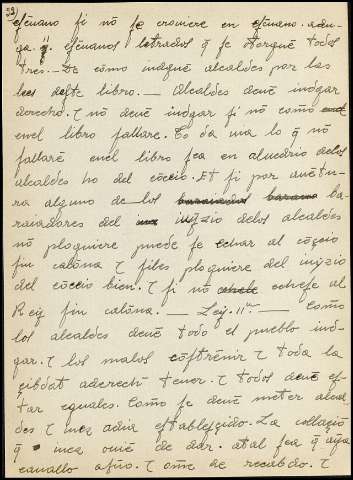 52)
escriuano si nõ se crouiere en escriuano. adu-
ga ii escriuanos letrados q̃ se otorguẽ todos
tres._ De como iudguẽ alcaldes por las
lees deste libro._ Alcaldes deuẽ iudgar
derecho. τ nõ deuẽ iudgar si nõ como
enel libro fallare. Lo da una lo q̃ nõ
fallarẽ enel libro sea en aluedrio delos
alcaldes τ del cõceio. Et si por auẽtu-
ra alguno de los ba-
raiadores del iuyzio delos alcaldes
nõ ploguiere puede se echar al cõceio
sin calõna τ si les ploguiere del iuyzio
del cõceio bien. τ si nõ echesse al
Rey sin calõna. _ Ley. 11ª _ Como
los alcaldes deuẽ todo el pueblo iud-
gar. τ los malos cõstrenir τ toda la
cibdat aderecho tener. τ todos deuẽ es-
tar eguales. Como se deuẽ meter alcal-
des τ iuez cadia establescido. La collaciõ
q̃ iuez ouie de dar. atal sea q̃ aya
cauallo año. τ ome de recabdo. τ